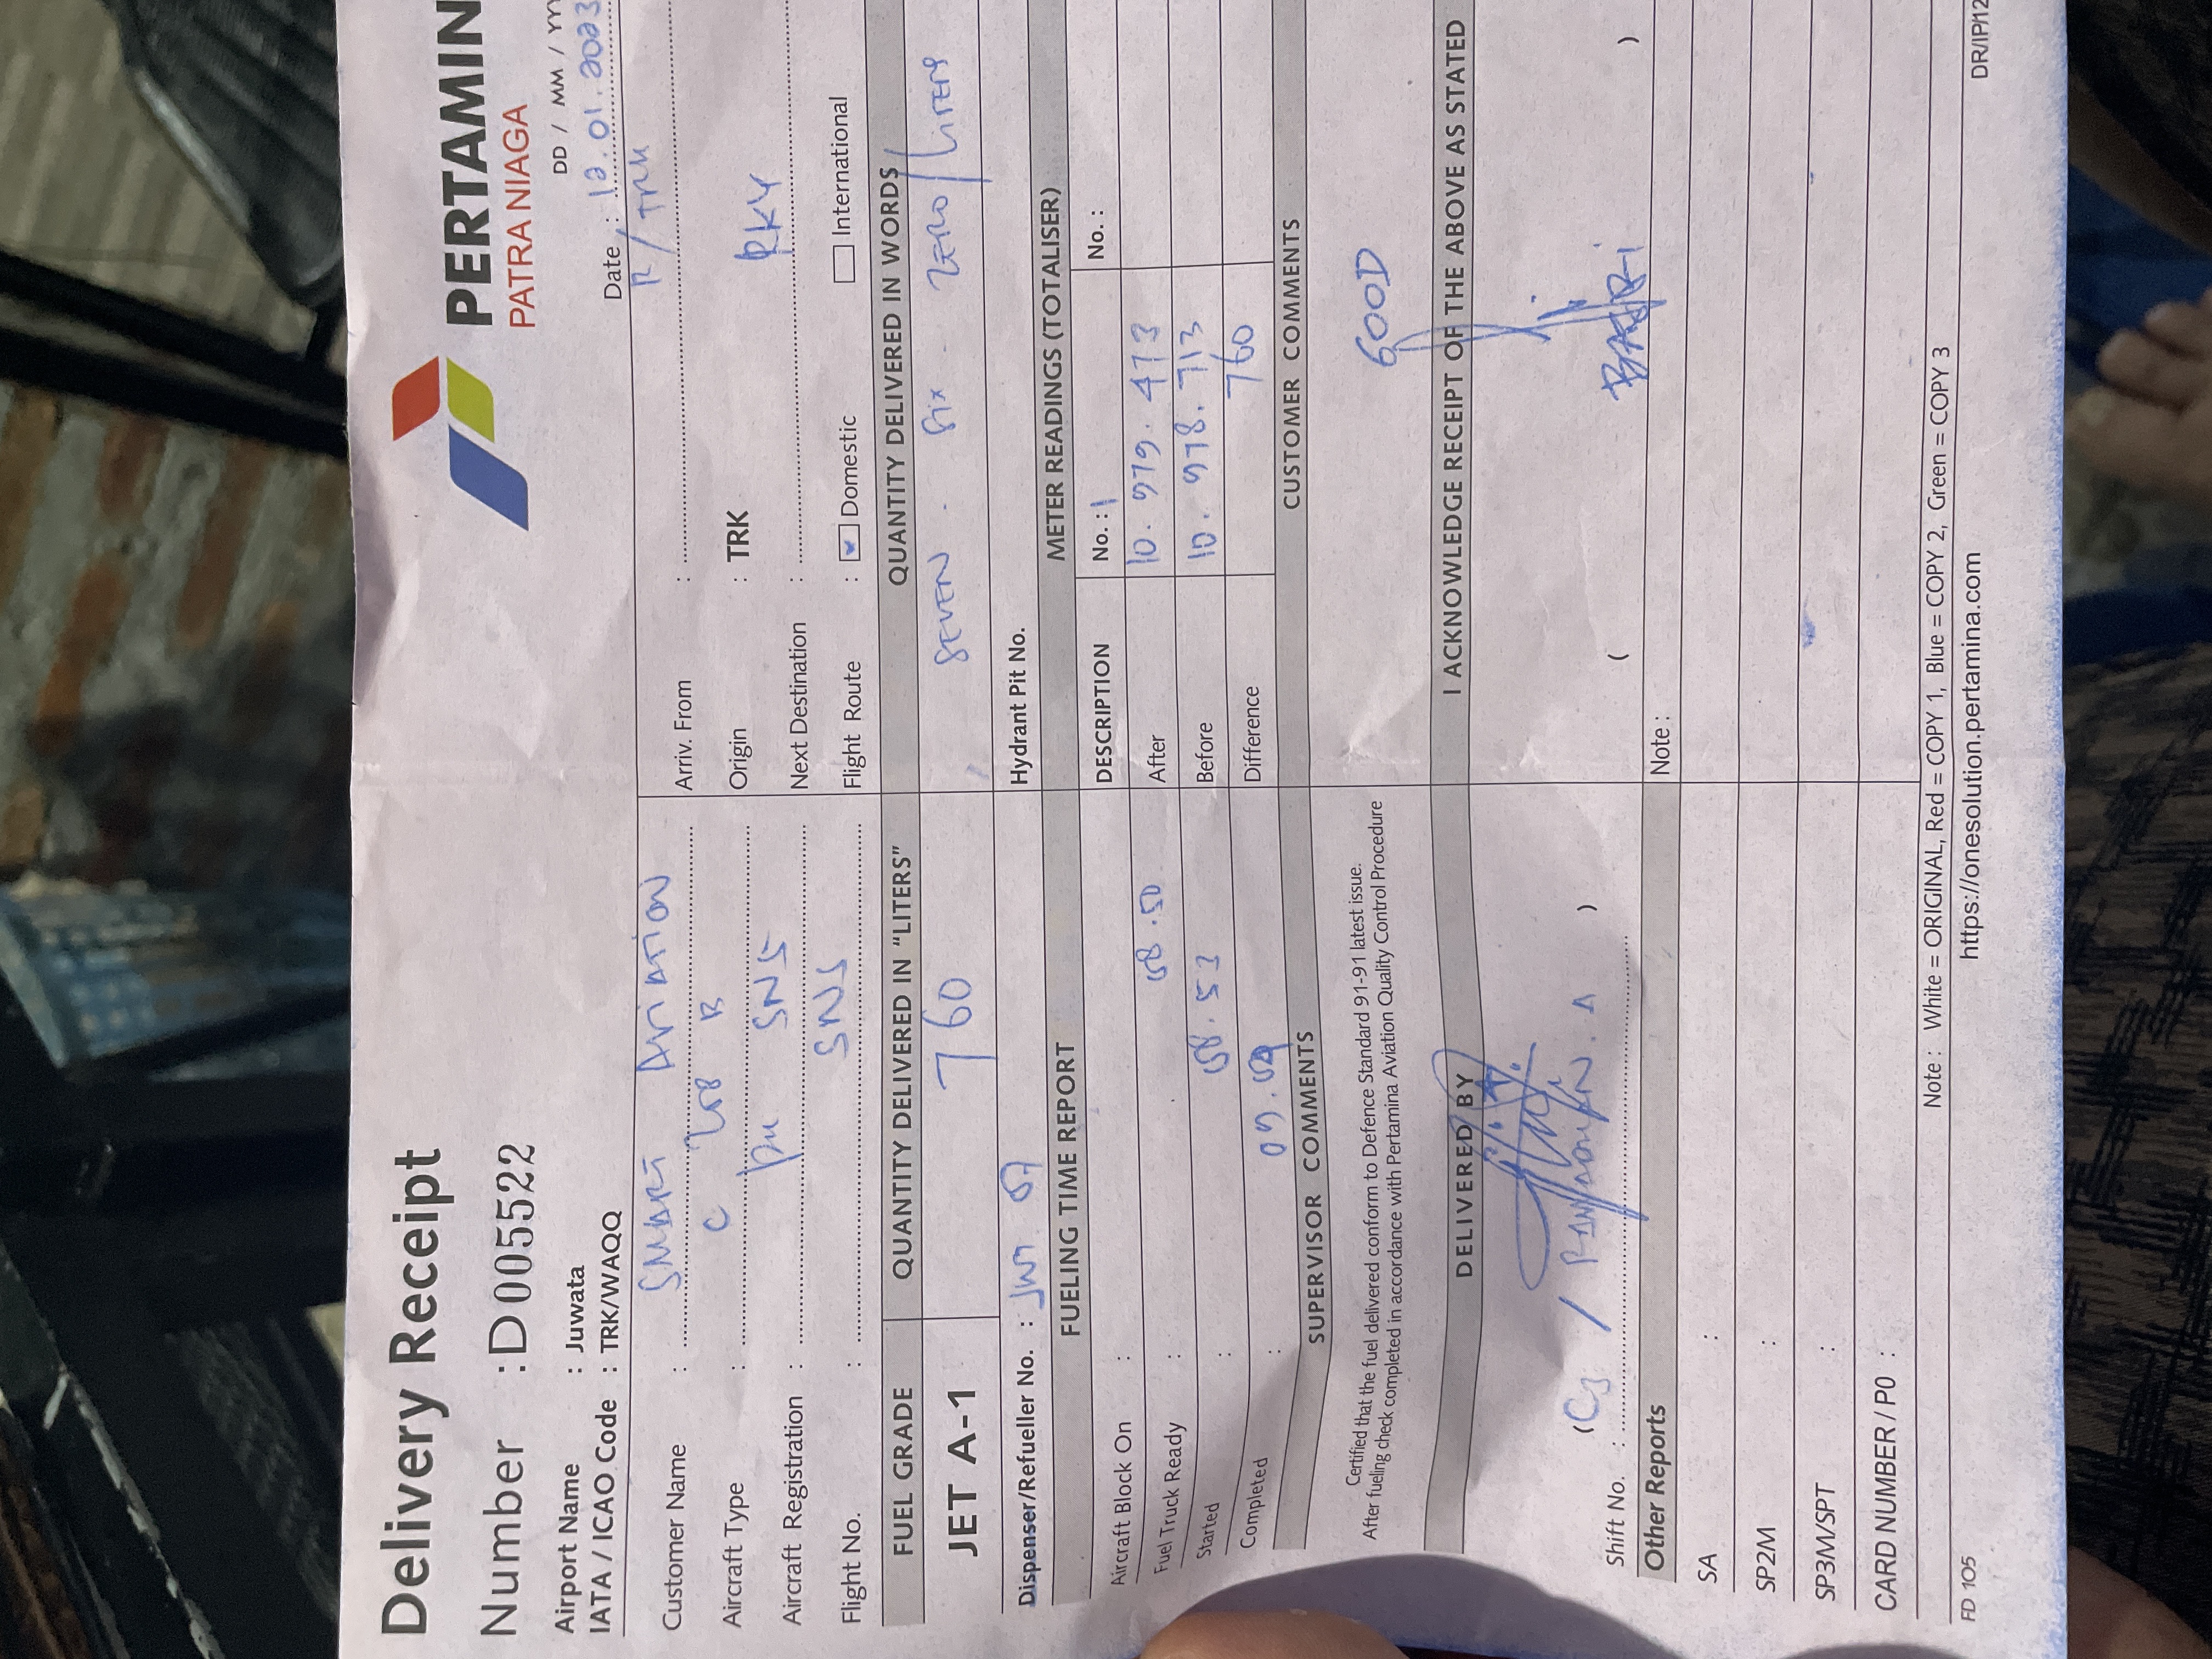 Delivery Receipt
PERTAMIN
PATRA NIAGA
Number : D005522
DD / MM /
Airport Name : Juwata
IATA / ICAO Code : TRK/WAQQ
Date : 12.01.2023
Customer Name : SMART AVIATION
Arriv. From : R / TRK
Aircraft Type : C 208 B
Origin : TRK
Aircraft Registration : PK SNS
Next Destination :
Flight No. : SNS
Flight Route : Domestic International
FUEL GRADE QUANTITY DELIVERED IN "LITERS" QUANTITY DELIVERED IN WORDS
JET A-1 760 SEVEN - SIX - ZERO / LITERS
Dispenser/Refueller No. :
Hydrant Pit No.
FUELING TIME REPORT METER READINGS (TOTALISER)
DESCRIPTION No. : 1 No. :
Aircraft Block On :
After 10.979.473
Fuel Truck Ready : 08.50
Before 10.978.713
Started : 08.53
Difference 760
Completed :
SUPERVISOR COMMENTS CUSTOMER COMMENTS
Certified that the fuel delivered conform to Defence Standard 91-91 latest issue.
After fueling check completed in accordance with Pertamina Aviation Quality Control Procedure
GOOD
DELIVERED BY I ACKNOWLEDGE RECEIPT OF THE ABOVE AS STATED
Shift No. :
( )
Other Reports Note :
SA :
SP2M :
SP3M/SPT :
CARD NUMBER / PO :
Note : White = ORIGINAL, Red = COPY 1, Blue = COPY 2, Green = COPY 3
FD 105 https://onesolution.pertamina.com DR/IP/12